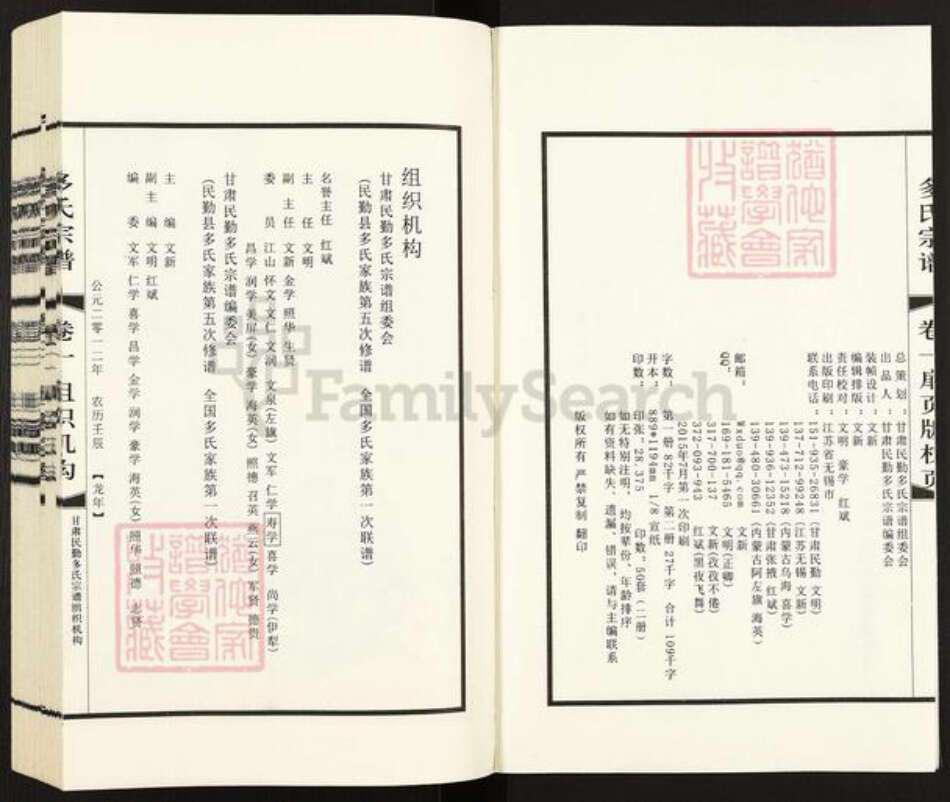 多氏宗谱
卷一扉页版权页
总 策 划：甘肃民勤多氏宗谱组委会
出 品 人：甘肃民勤多氏宗谱编委会
装帧设计：文新
编辑排版：文新
责任校对：文明 豪学 红斌
出版印刷：江苏省无锡市
联系电话：151-935-26831（甘肃民勤 文明）
137-712-99248（江苏无锡 文新）
139-473-15218（内蒙古乌海 喜学）
139-936-12352（甘肃张掖 红斌）
139-480-30661（内蒙古阿左旗 海英）
邮箱：Wxduo@qq.com 文新
QQ：169-181-5465 文明(正卿)
317-700-137 文新(孜孜不倦)
372-093-943 红斌(黑夜飞舞)
2015年7月第一次印刷
字数：第一册 82千字 第二册 27千字 合计 109千字
开本：889*1194mm 1/8 宣纸
印数：印张：28.375 印数：50套（二册）
如无特别注明，均按辈份、年龄排序
如有资料缺失、遗漏、错误，请与主编联系
版权所有 严禁复制 翻印
组织机构
甘肃民勤多氏宗谱组委会
（民勤县多氏家族第五次修谱 全国多氏家族第一次联谱）
名誉主任 红斌
主 任 文明
副 主 任 文新 金学 照华 生贤
委 员 江山 怀文 文仁 文润 文泉(左旗) 文军 仁学 寿学 喜学 尚学(伊犁)
昌学 润学 美屏(女) 豪学 海英(女) 照德 召英 燕云(女) 军贤 德贵
甘肃民勤多氏宗谱编委会
（民勤县多氏家族第五次修谱 全国多氏家族第一次联谱）
主 编 文新
副 主 编 文明 红斌
编 委 文军 仁学 喜学 昌学 金学 润学 豪学 海英(女) 照华 照德 志贤
公元二零一二年 农历壬辰 【龙年】
多氏宗谱
卷一 组织机构
甘肃民勤多氏宗谱组织机构
FamilySearch